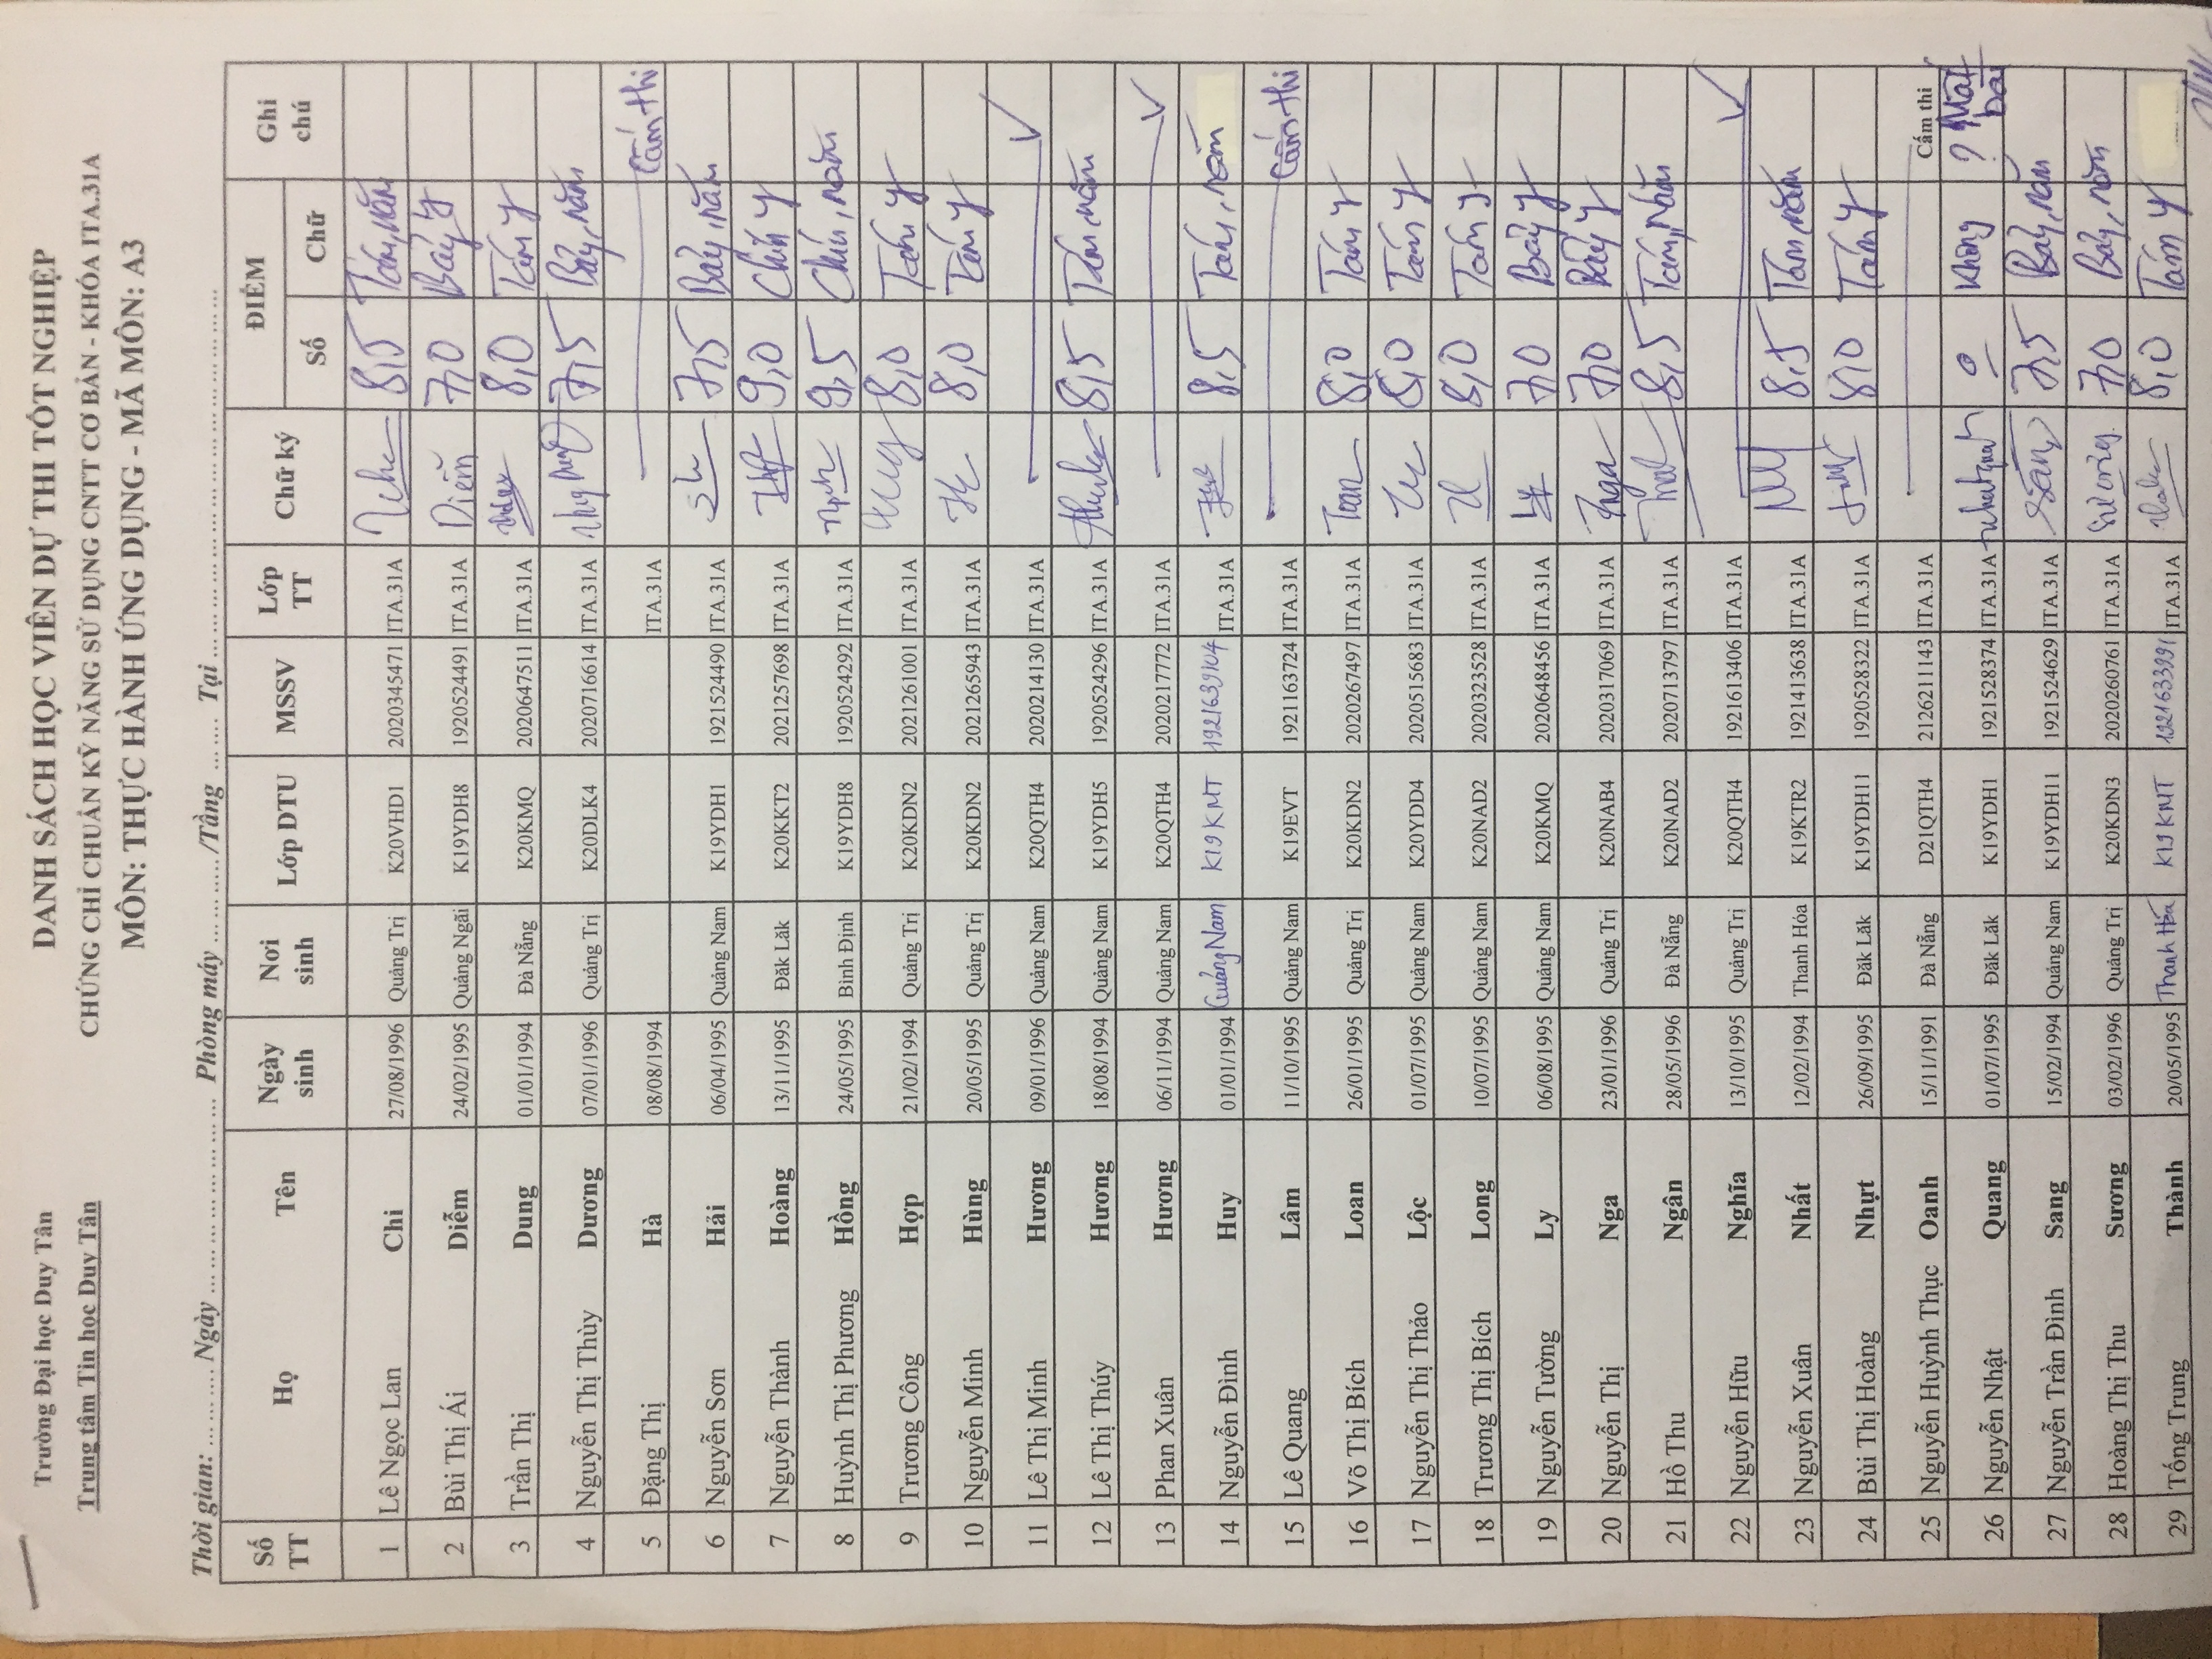 Trường Đại học Duy Tân
Trung tâm Tin học Duy Tân
DANH SÁCH HỌC VIÊN DỰ THI TỐT NGHIỆP
CHỨNG CHỈ CHUẨN KỸ NĂNG SỬ DỤNG CNTT CƠ BẢN - KHÓA ITA.31A
MÔN: THỰC HÀNH ỨNG DỤNG - MÃ MÔN: A3
Thời gian: ... ... .... Ngày ... ... ... ... ... ... ... Phòng máy ... ... ... ... /Tầng ... ... Tại ... ... ... ... ... ... ... ... ...
Số TT Họ Tên Ngày sinh Nơi sinh Lớp DTU MSSV Lớp TT Chữ ký ĐIỂM Số Chữ Ghi chú
1 Lê Ngọc Lan Chi 27/08/1996 Quảng Trị K20VHD1 2020345471 ITA.31A 8,5 Tám, năm
2 Bùi Thị Ái Diễm 24/02/1995 Quảng Ngãi K19YDH8 1920524491 ITA.31A Diễm 7,0 Bảy y
3 Trần Thị Dung 01/01/1994 Đà Nẵng K20KMQ 2020647511 ITA.31A 8,0 Tám y
4 Nguyễn Thị Thùy Dương 07/01/1996 Quảng Trị K20DLK4 2020716614 ITA.31A 7,5 Bảy, năm
5 Đặng Thị Hà 08/08/1994 ITA.31A Cấm thi
6 Nguyễn Sơn Hải 06/04/1995 Quảng Nam K19YDH1 1921524490 ITA.31A 7,5 Bảy, năm
7 Nguyễn Thành Hoàng 13/11/1995 Đăk Lăk K20KKT2 2021257698 ITA.31A 9,0 Chín y
8 Huỳnh Thị Phương Hồng 24/05/1995 Bình Định K19YDH8 1920524292 ITA.31A 9,5 Chín, năm
9 Trương Công Hợp 21/02/1994 Quảng Trị K20KDN2 2021261001 ITA.31A 8,0 Tám y
10 Nguyễn Minh Hùng 20/05/1995 Quảng Trị K20KDN2 2021265943 ITA.31A 8,0 Tám y
11 Lê Thị Minh Hương 09/01/1996 Quảng Nam K20QTH4 2020214130 ITA.31A
12 Lê Thị Thúy Hương 18/08/1994 Quảng Nam K19YDH5 1920524296 ITA.31A 8,5 Tám, năm
13 Phan Xuân Hương 06/11/1994 Quảng Nam K20QTH4 2020217772 ITA.31A
14 Nguyễn Đình Huy 01/01/1994 Quảng Nam K19KMT 1921639104 ITA.31A 8,5 Tám, năm
15 Lê Quang Lâm 11/10/1995 Quảng Nam K19EVT 1921163724 ITA.31A Cấm thi
16 Võ Thị Bích Loan 26/01/1995 Quảng Trị K20KDN2 2020267497 ITA.31A 8,0 Tám y
17 Nguyễn Thị Thảo Lộc 01/07/1995 Quảng Nam K20YDD4 2020515683 ITA.31A 8,0 Tám y
18 Trương Thị Bích Long 10/07/1995 Quảng Nam K20NAD2 2020323528 ITA.31A 8,0 Tám y
19 Nguyễn Tường Ly 06/08/1995 Quảng Nam K20KMQ 2020648456 ITA.31A 7,0 Bảy y
20 Nguyễn Thị Nga 23/01/1996 Quảng Trị K20NAB4 2020317069 ITA.31A Nga 7,0 Bảy y
21 Hồ Thu Ngân 28/05/1996 Đà Nẵng K20NAD2 2020713797 ITA.31A 8,5 Tám, năm
22 Nguyễn Hữu Nghĩa 13/10/1995 Quảng Trị K20QTH4 1921613406 ITA.31A
23 Nguyễn Xuân Nhất 12/02/1994 Thanh Hóa K19KTR2 1921413638 ITA.31A 8.5 Tám, năm
24 Bùi Thị Hoàng Nhựt 26/09/1995 Đăk Lăk K19YDH11 1920528322 ITA.31A 8,0 Tám y
25 Nguyễn Huỳnh Thục Oanh 15/11/1991 Đà Nẵng D21QTH4 2126211143 ITA.31A Cấm thi
26 Nguyễn Nhật Quang 01/07/1995 Đăk Lăk K19YDH1 1921528374 ITA.31A 0 Không ? Mất bài
27 Nguyễn Trần Đình Sang 15/02/1994 Quảng Nam K19YDH11 1921524629 ITA.31A Sang 7,5 Bảy, năm
28 Hoàng Thị Thu Sương 03/02/1996 Quảng Trị K20KDN3 2020260761 ITA.31A Sương 7,0 Bảy, năm
29 Tống Trung Thành 20/05/1995 Thanh Hóa K19KMT ITA.31A 8,0 Tám y